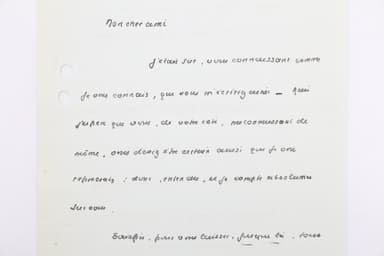 Mon cher ami
J'étais sûr, vous connaissant comme
je vous connais, que vous m'écririez aussi —
que vous, de votre côté, me connaissant de
même, vous deviez être certain aussi que je vous
répondrais : donc, entendu, et je compte absolument
sur vous.
pour vous laisser, jusque là, toute